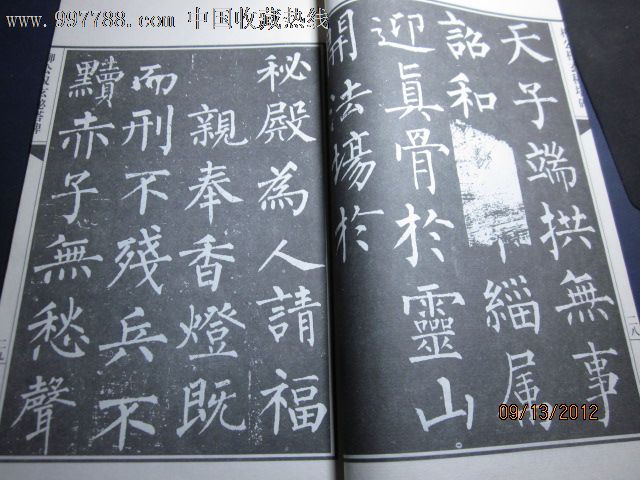 www.997788.com 中国收藏热线
天子端拱無事
詔和
緇属
迎眞骨於靈山
開法場於
秘殿為人請福
親奉香燈既
而刑不殘兵不
黷赤子無愁聲
09/13/2012